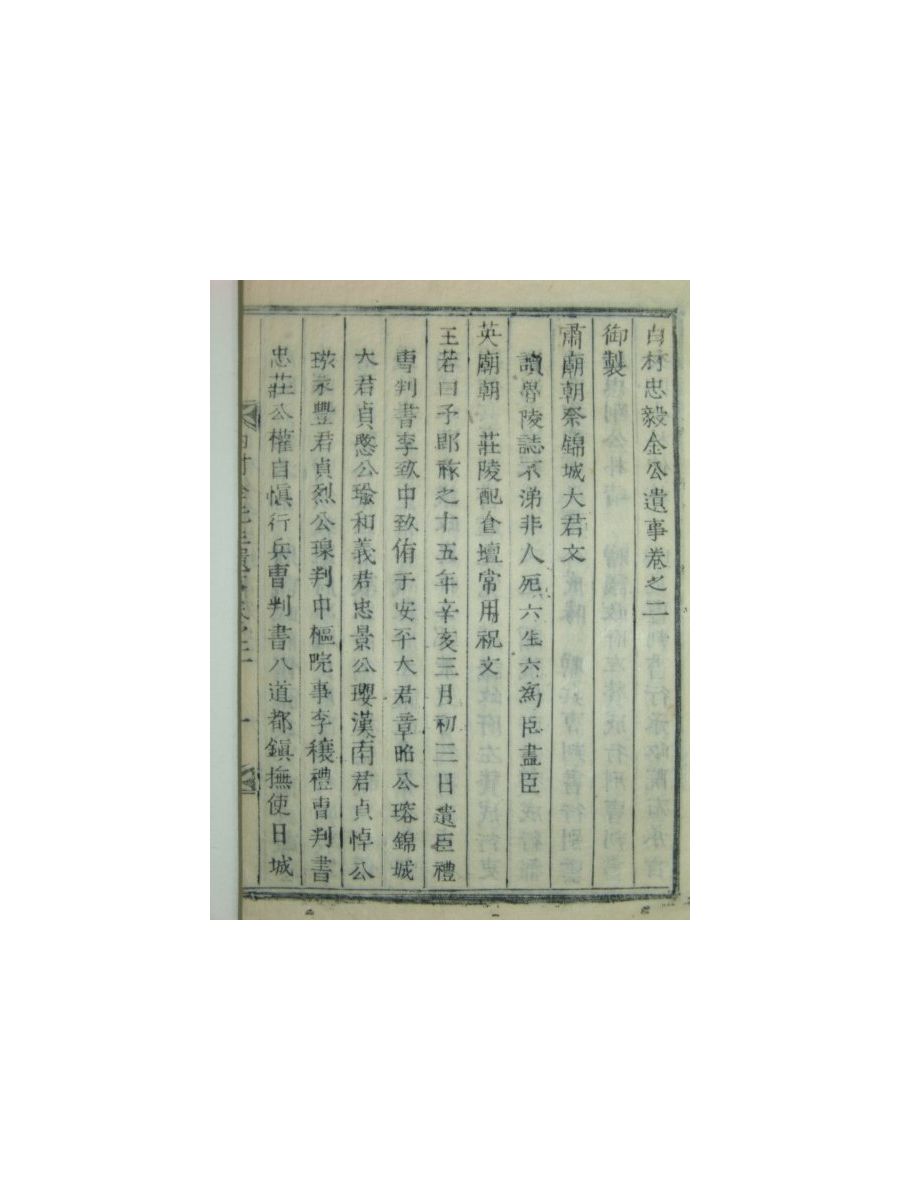 白村忠毅金公遺事卷之二
御製
肅廟朝祭錦城大君文
讀魯陵誌不涕非人死六生六爲臣盡臣
英廟朝 莊陵配食壇常用祝文
王若曰予卽祚之十五年辛亥三月初三日遣臣禮
曹判書李致中致侑于安平大君章昭公瑢錦城
大君貞愍公瑜和義君忠景公瓔漢南君貞悼公
永豐君貞烈公瑔判中樞院事李穰禮曹判書
忠莊公權自愼行兵曹判書八道都鎭撫使日城